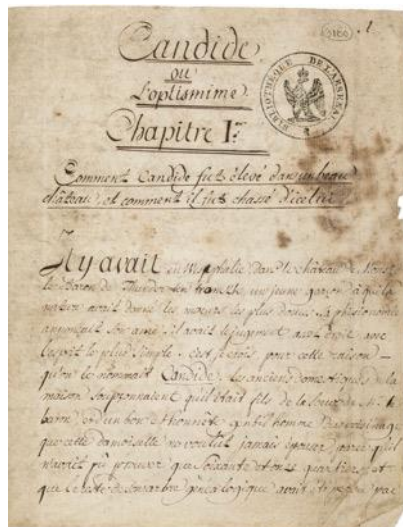 Candide
ou
L'optismime.
Chapitre Ier
3160
1
BIBLIOTHEQUE DE L'ARSENAL
Comment Candide fut élevé dans un beau
château, et comment il fut chassé d'icelui
Il y avait en Westphalie dans le château de Monsr
le Baron de Thunder-ten-tronckh, un jeune garçon à qui la
nature avait donné les moeurs les plus douces. Sa phisionomie
annonçait son ame. il avait le jugement assez droit, avec
l'esprit le plus simple. c'est je crois pour cette raison –
qu'on le nommait Candide. les anciens domestiques de la
maison soupçonnaient qu'il était fils de la soeur de Mr le
baron et d'un bon et honnête gentilhomme du voisinage
que cette damoiselle ne voulut jamais épouser, parce qu'il
n'avait pû prouver que soixante et onze quartiers, et
que le reste de son arbre généalogique avait été perdu par